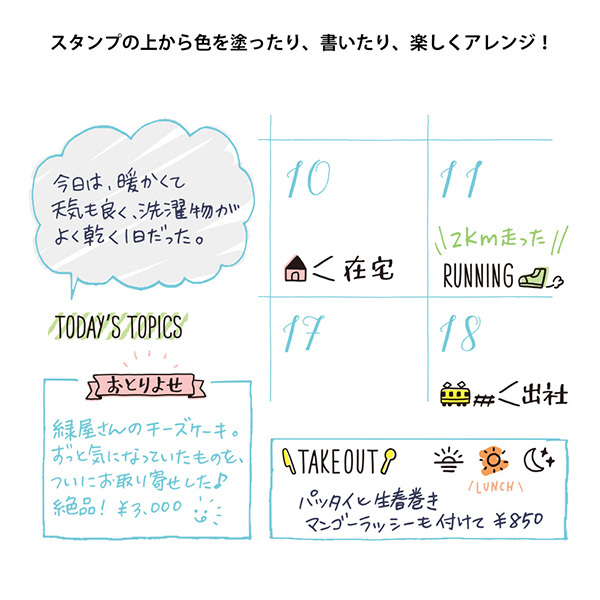 スタンプの上から色を塗ったり、書いたり、楽しくアレンジ！
今日は、暖かくて
天気も良く、洗濯物が
よく乾く1日だった。
TODAY'S TOPICS
10
在宅
11
12km走った
RUNNING
17
18
出社
おとりよせ
緑屋さんのチーズケーキ。
ずっと気になっていたものを、
ついにお取り寄せした♪
絶品！ ¥3,000
TAKEOUT
LUNCH
パッタイと生春巻き
マンゴーラッシーも付けて ¥850